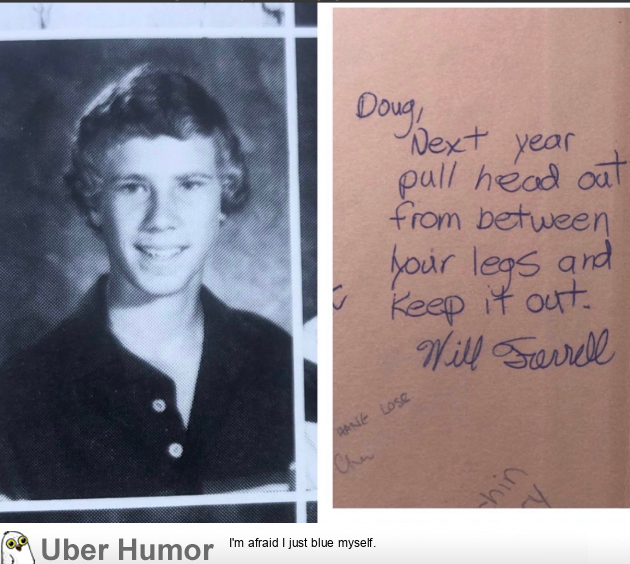 Doug,
Next year
pull head out
from between
your legs and
keep it out.
Will Farrell
HAVE LOSE
Uber Humor
I'm afraid I just blue myself.